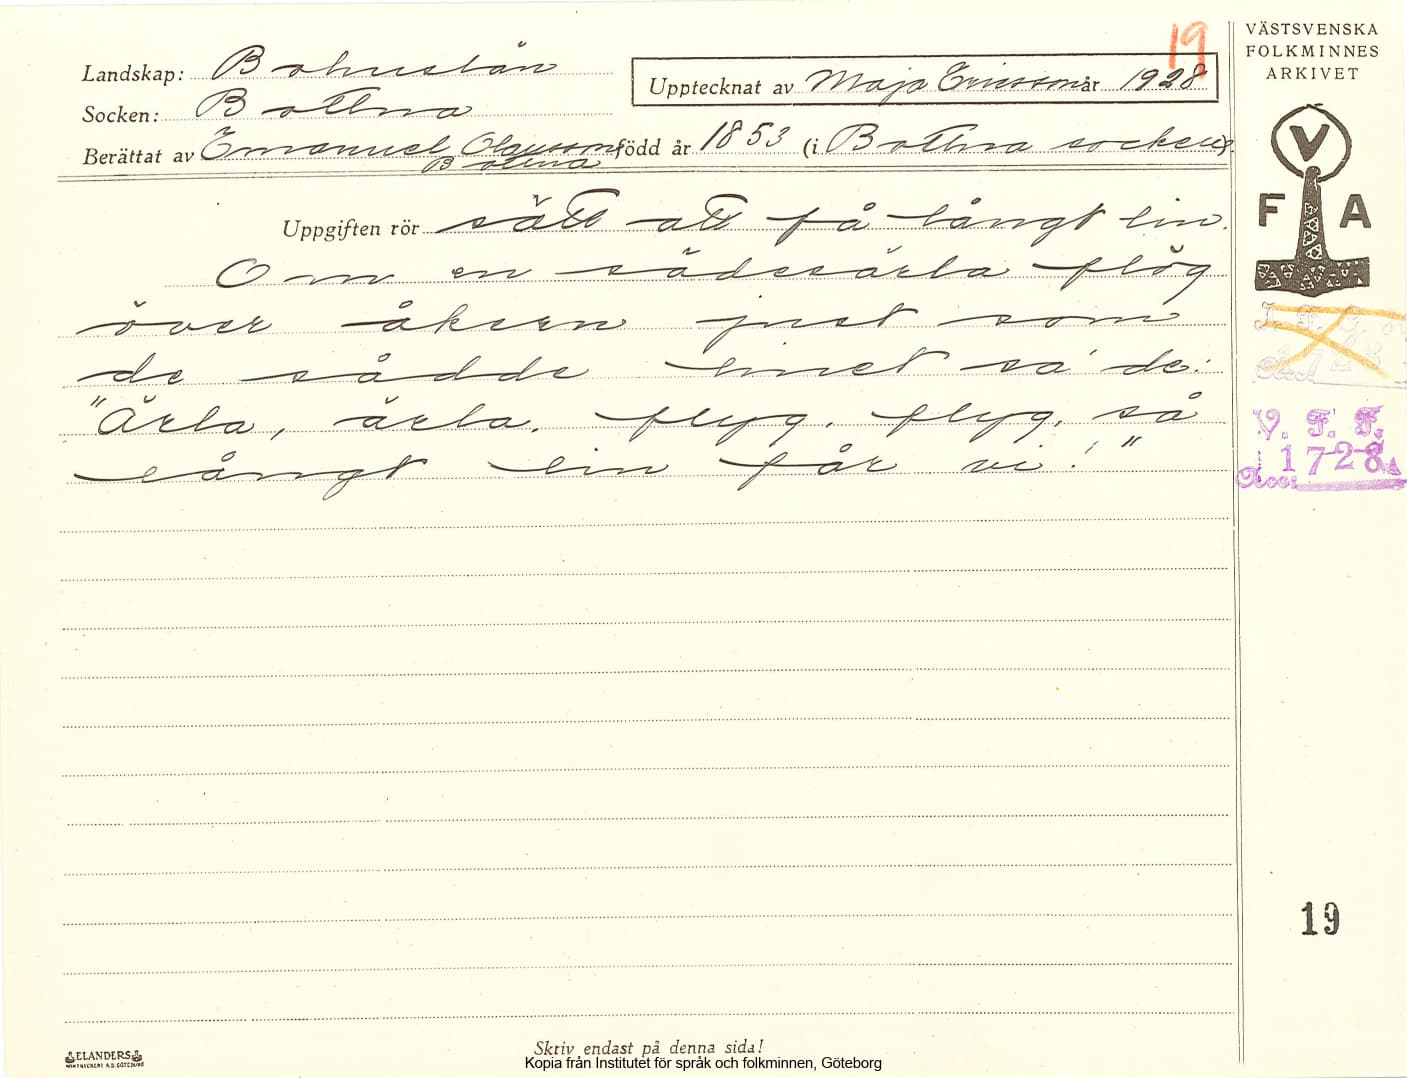 19
VÄSTSVENSKA
FOLKMINNES
ARKIVET
Landskap: Bohuslän
Upptecknat av Maja Ericsson år 1928
Socken: Bottna
Berättat av Emanuel Olausson född år 1853 (i Bottna socken)
Bottna
V
F A
Uppgiften rör sätt att få långt lin.
Om en sädesärla flög
över åkern just som
de sådde linet sa' de:
"Ärla, ärla, flyg, flyg, så
långt lin får vi!"
V. F. F.
1728
Acc:
19
Skriv endast på denna sida!
ELANDERS
Kopia från Institutet för språk och folkminnen, Göteborg